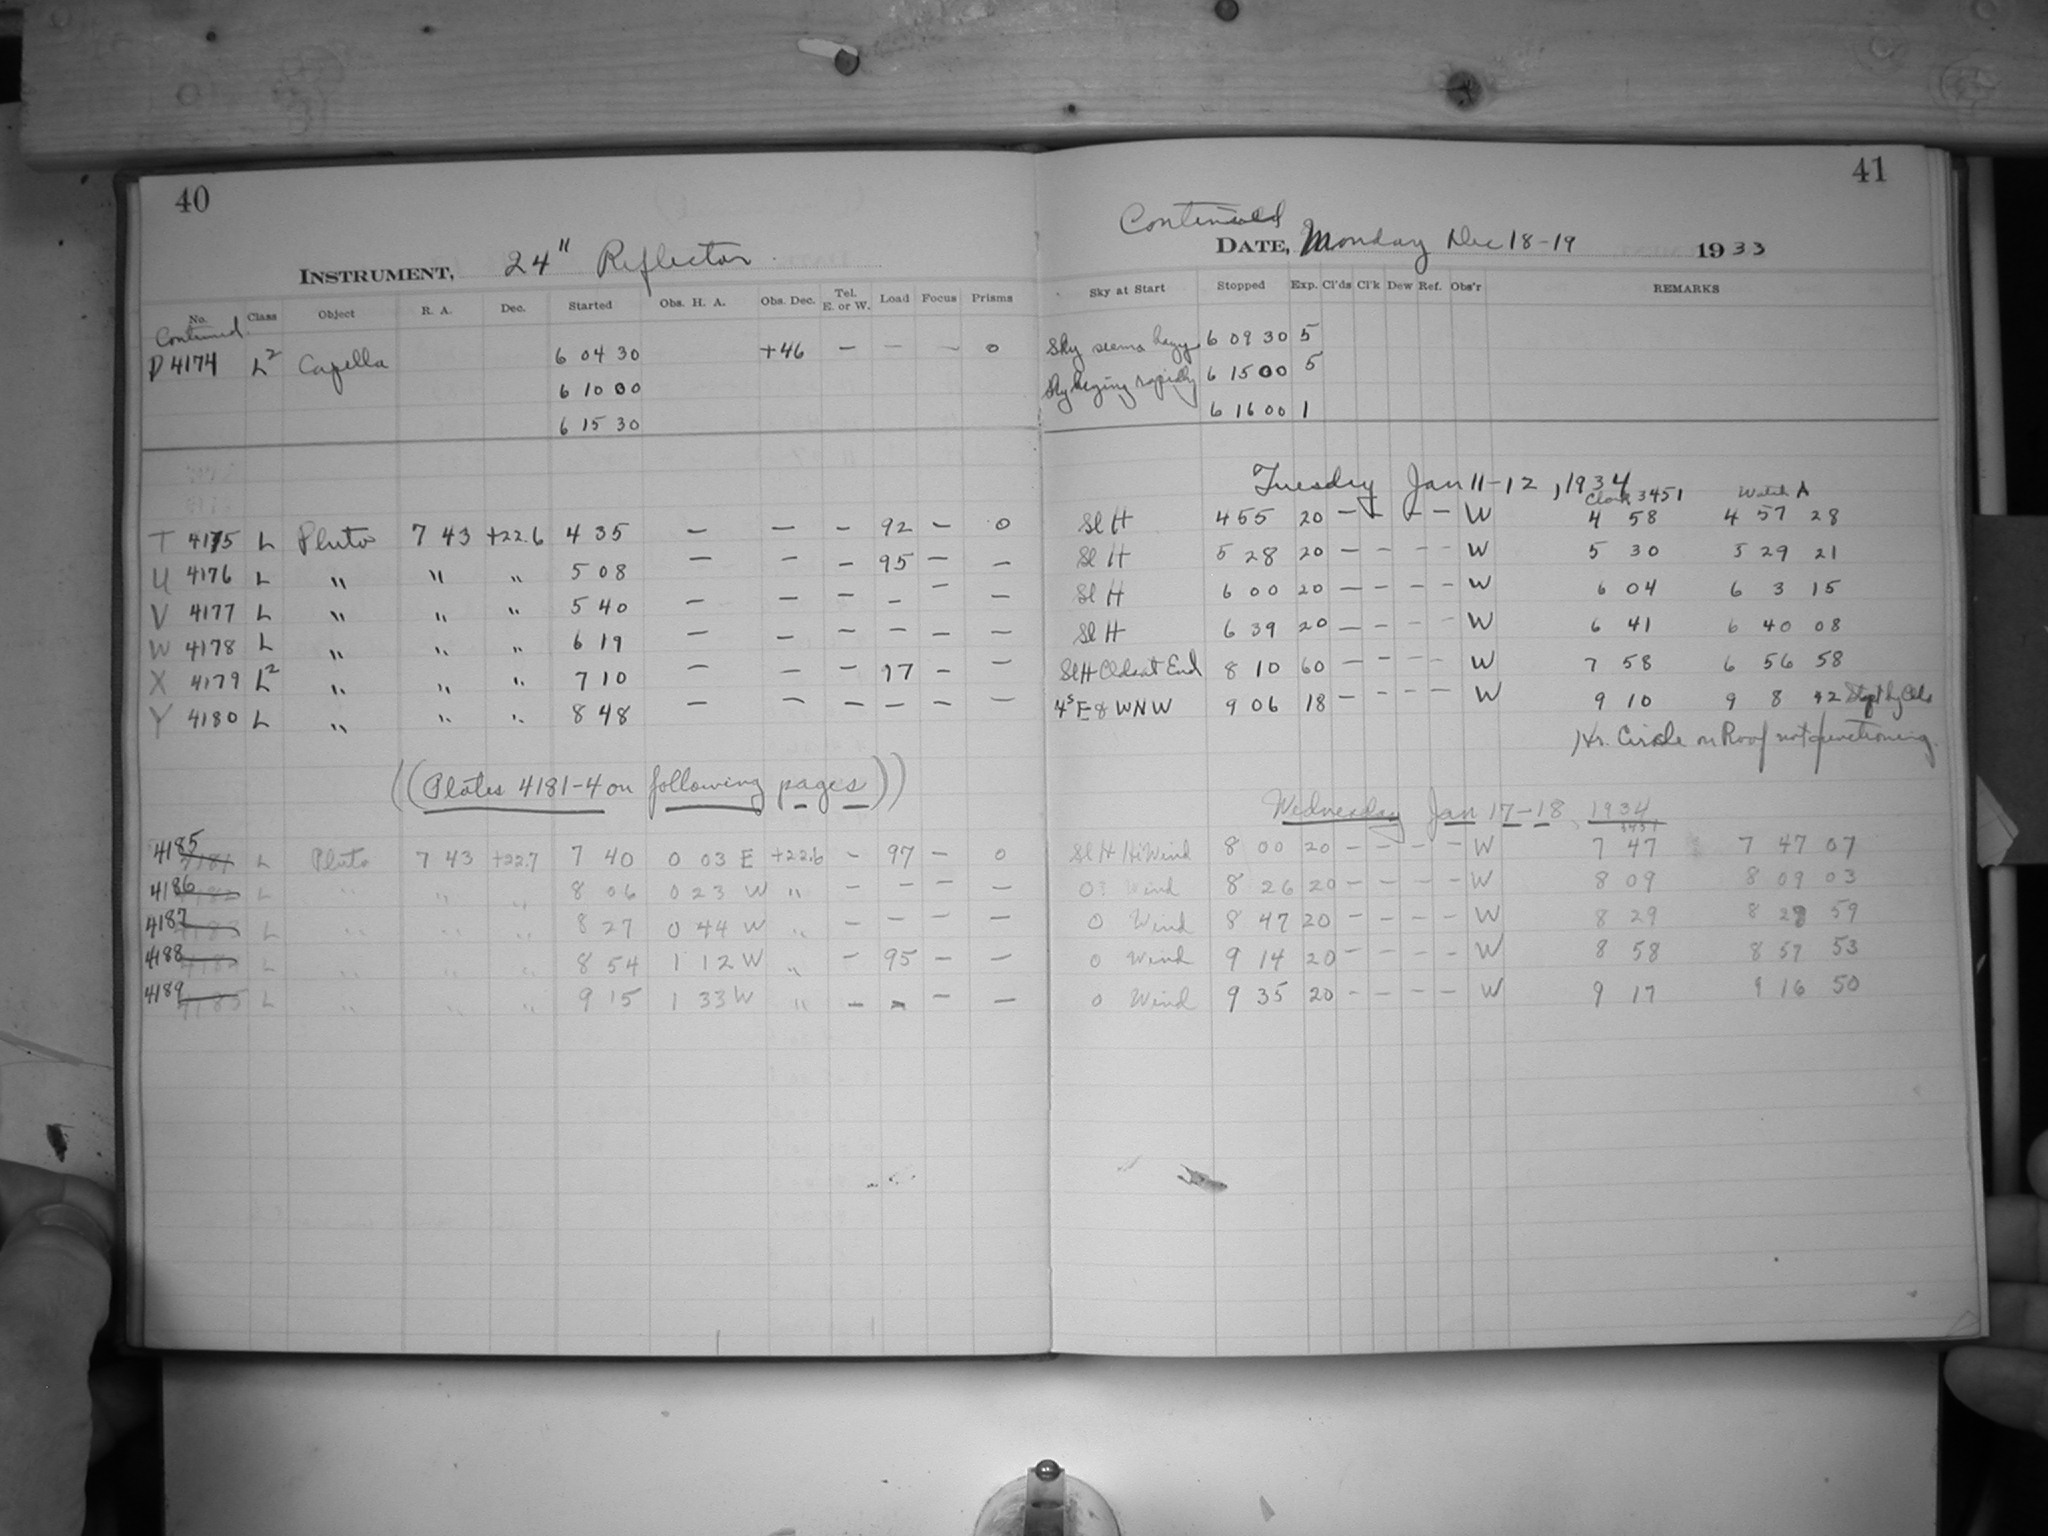 40
INSTRUMENT, 24" Reflector
No. Class Object R. A. Dec. Started Obs. H. A. Obs. Dec. Tel. E. or W. Load Focus Prisms
Continued
P 4174 L² Capella 6 04 30 +46 — — — 0
6 10 00
6 15 30
T 4175 L Pluto 7 43 +22.6 4 35 — — — 92 — 0
U 4176 L " " " 5 08 — — — 95 — —
V 4177 L " " " 5 40 — — — — — —
W 4178 L " " " 6 19 — — — — — —
X 4179 L² " " " 7 10 — — — 17 — —
Y 4180 L " " " 8 48 — — — — — —
((Plates 4181-4 on following pages))
4185 4181 L Pluto 7 43 +22.7 7 40 0 03 E +22.6 — 97 — 0
4186 4182 L " " " 8 06 0 23 W " — — — —
4187 4183 L " " " 8 27 0 44 W " — — — —
4188 4184 L " " " 8 54 1 12 W " — 95 — —
4189 4185 L " " " 9 15 1 33 W " — — — —
41
Continued
DATE, Monday Dec 18-19 1933
Sky at Start Stopped Exp. Cl'ds Cl'k Dew Ref. Obs'r REMARKS
Sky seems hazy 6 09 30 5
Sky hazing rapidly 6 15 00 5
6 16 00 1
Tuesday Jan 11-12, 1934
Clock 3451 Watch A
Sl H 4 55 20 — — — — W 4 58 4 57 28
Sl H 5 28 20 — — — — W 5 30 5 29 21
Sl H 6 00 20 — — — — W 6 04 6 3 15
Sl H 6 39 20 — — — — W 6 41 6 40 08
Sl H Clds at End 8 10 60 — — — — W 7 58 6 56 58
4ˢ E & WNW 9 06 18 — — — — W 9 10 9 8 42 Stop't by Clds
Hr. Circle on Roof not functioning
Wednesday Jan 17-18, 1934
3451
Sl H Hi Wind 8 00 20 — — — — W 7 47 7 47 07
0? Wind 8 26 20 — — — — W 8 09 8 09 03
0 Wind 8 47 20 — — — — W 8 29 8 28 59
0 Wind 9 14 20 — — — — W 8 58 8 57 53
0 Wind 9 35 20 — — — — W 9 17 9 16 50